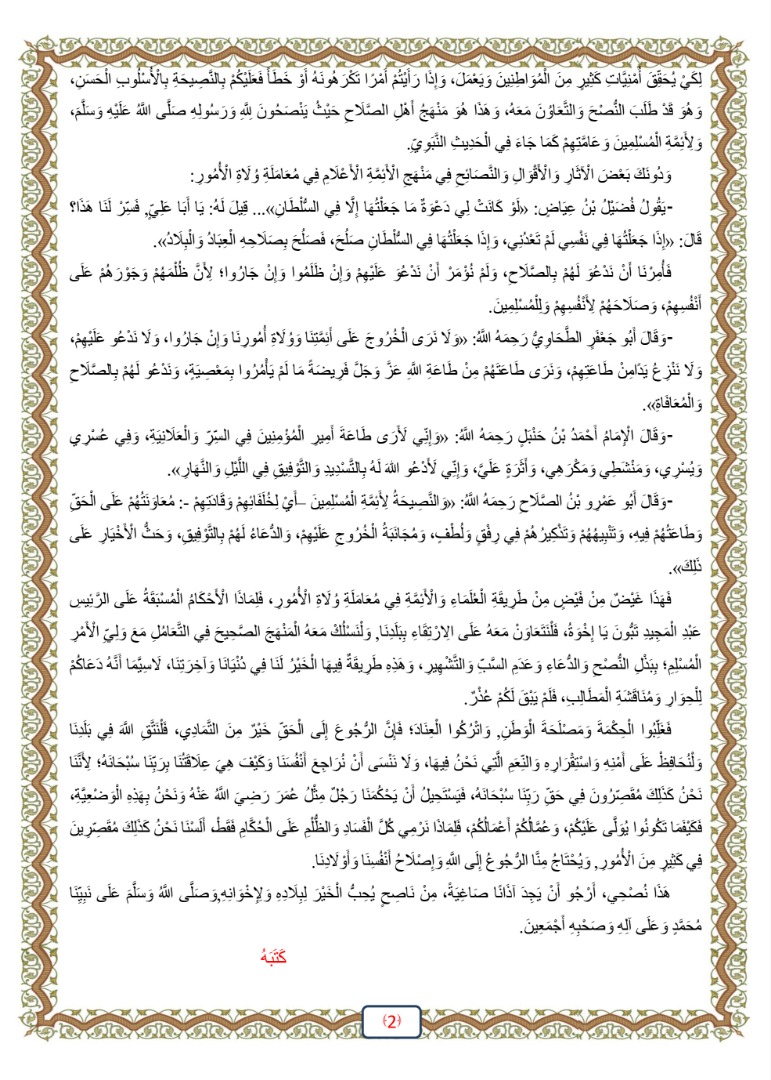 لِكَيْ يُحَقِّقَ أُمْنِيَّاتِ كَثِيرٍ مِنَ الْمُوَاطِنِينَ وَيَعْمَلَ، وَإِذَا رَأَيْتُمْ أَمْرًا تَكْرَهُونَهُ أَوْ خَطَأً فَعَلَيْكُمْ بِالنَّصِيحَةِ بِالْأُسْلُوبِ الْحَسَنِ،
وَهُوَ قَدْ طَلَبَ النُّصْحَ وَالتَّعَاوُنَ مَعَهُ، وَهَذَا هُوَ مَنْهَجُ أَهْلِ الصَّلَاحِ حَيْثُ يَنْصَحُونَ لِلَّهِ وَرَسُولِهِ صَلَّى اللَّهُ عَلَيْهِ وَسَلَّمَ،
وَلِأَئِمَّةِ الْمُسْلِمِينَ وَعَامَّتِهِمْ كَمَا جَاءَ فِي الْحَدِيثِ النَّبَوِيِّ.
وَدُونَكَ بَعْضَ الْآثَارِ وَالْأَقْوَالِ وَالنَّصَائِحِ فِي مَنْهَجِ الْأَئِمَّةِ الْأَعْلَامِ فِي مُعَامَلَةِ وُلَاةِ الْأُمُورِ:
-يَقُولُ فُضَيْلُ بْنُ عِيَاضٍ: «لَوْ كَانَتْ لِي دَعْوَةٌ مَا جَعَلْتُهَا إِلَّا فِي السُّلْطَانِ»... قِيلَ لَهُ: يَا أَبَا عَلِيٍّ, فَسِّرْ لَنَا هَذَا؟
قَالَ: «إِذَا جَعَلْتُهَا فِي نَفْسِي لَمْ تَعْدُنِي، وَإِذَا جَعَلْتُهَا فِي السُّلْطَانِ صَلُحَ، فَصَلُحَ بِصَلَاحِهِ الْعِبَادُ وَالْبِلَادُ».
فَأُمِرْنَا أَنْ نَدْعُوَ لَهُمْ بِالصَّلَاحِ، وَلَمْ نُؤْمَرْ أَنْ نَدْعُوَ عَلَيْهِمْ وَإِنْ ظَلَمُوا وَإِنْ جَارُوا؛ لِأَنَّ ظُلْمَهُمْ وَجَوْرَهُمْ عَلَى
أَنْفُسِهِمْ، وَصَلَاحَهُمْ لِأَنْفُسِهِمْ وَلِلْمُسْلِمِينَ.
-وَقَالَ أَبُو جَعْفَرٍ الطَّحَاوِيُّ رَحِمَهُ اللَّهُ: «وَلَا نَرَى الْخُرُوجَ عَلَى أَئِمَّتِنَا وَوُلَاةِ أُمُورِنَا وَإِنْ جَارُوا، وَلَا نَدْعُو عَلَيْهِمْ،
وَلَا نَنْزِعُ يَدًامِنْ طَاعَتِهِمْ، وَنَرَى طَاعَتَهُمْ مِنْ طَاعَةِ اللَّهِ عَزَّ وَجَلَّ فَرِيضَةً مَا لَمْ يَأْمُرُوا بِمَعْصِيَةٍ، وَنَدْعُو لَهُمْ بِالصَّلَاحِ
وَالْمُعَافَاةِ».
-وَقَالَ الْإِمَامُ أَحْمَدُ بْنُ حَنْبَلٍ رَحِمَهُ اللَّهُ: «وَإِنِّي لَأَرَى طَاعَةَ أَمِيرِ الْمُؤْمِنِينَ فِي السِّرِّ وَالْعَلَانِيَةِ، وَفِي عُسْرِي
وَيُسْرِي، وَمَنْشَطِي وَمَكْرَهِي، وَأَثَرَةٍ عَلَيَّ، وَإِنِّي لَأَدْعُو اللهَ لَهُ بِالتَّسْدِيدِ وَالتَّوْفِيقِ فِي اللَّيْلِ وَالنَّهَارِ».
-وَقَالَ أَبُو عَمْرِو بْنُ الصَّلَاحِ رَحِمَهُ اللَّهُ: «وَالنَّصِيحَةُ لِأَئِمَّةِ الْمُسْلِمِينَ –أَيْ لِخُلَفَائِهِمْ وَقَادَتِهِمْ -: مُعَاوَنَتُهُمْ عَلَى الْحَقِّ
وَطَاعَتُهُمْ فِيهِ، وَتَنْبِيهُهُمْ وَتَذْكِيرُهُمْ فِي رِفْقٍ وَلُطْفٍ، وَمُجَانَبَةُ الْخُرُوجِ عَلَيْهِمْ، وَالدُّعَاءُ لَهُمْ بِالتَّوْفِيقِ، وَحَثُّ الْأَخْيَارِ عَلَى
ذَلِكَ».
فَهَذَا غَيْضٌ مِنْ فَيْضٍ مِنْ طَرِيقَةِ الْعُلَمَاءِ وَالْأَئِمَّةِ فِي مُعَامَلَةِ وُلَاةِ الْأُمُورِ، فَلِمَاذَا الْأَحْكَامُ الْمُسْبَقَةُ عَلَى الرَّئِيسِ
عَبْدِ الْمَجِيدِ تَبُّونَ يَا إِخْوَةُ، فَلْنَتَعَاوَنْ مَعَهُ عَلَى الِارْتِقَاءِ بِبَلَدِنَا, وَلْنَسْلُكْ مَعَهُ الْمَنْهَجَ الصَّحِيحَ فِي التَّعَامُلِ مَعَ وَلِيِّ الْأَمْرِ
الْمُسْلِمِ؛ بِبَذْلِ النُّصْحِ وَالدُّعَاءِ وَعَدَمِ السَّبِّ وَالتَّشْهِيرِ، وَهَذِهِ طَرِيقَةٌ فِيهَا الْخَيْرُ لَنَا فِي دُنْيَانَا وَآخِرَتِنَا، لَاسِيَّمَا أَنَّهُ دَعَاكُمْ
لِلْحِوَارِ وَمُنَاقَشَةِ الْمَطَالِبِ، فَلَمْ يَبْقَ لَكُمْ عُذْرٌ.
فَغَلِّبُوا الْحِكْمَةَ وَمَصْلَحَةَ الْوَطَنِ, وَاتْرُكُوا الْعِنَادَ؛ فَإِنَّ الرُّجُوعَ إِلَى الْحَقِّ خَيْرٌ مِنَ التَّمَادِي، فَلْنَتَّقِ اللَّهَ فِي بَلَدِنَا
وَلْنُحَافِظْ عَلَى أَمْنِهِ وَاسْتِقْرَارِهِ وَالنِّعَمِ الَّتِي نَحْنُ فِيهَا، وَلَا نَنْسَى أَنْ نُرَاجِعَ أَنْفُسَنَا وَكَيْفَ هِيَ عِلَاقَتُنَا بِرَبِّنَا سُبْحَانَهُ؛ لِأَنَّنَا
نَحْنُ كَذَلِكَ مُقَصِّرُونَ فِي حَقِّ رَبِّنَا سُبْحَانَهُ، فَيَسْتَحِيلُ أَنْ يَحْكُمَنَا رَجُلٌ مِثْلُ عُمَرَ رَضِيَ اللَّهُ عَنْهُ وَنَحْنُ بِهَذِهِ الْوَضْعِيَّةِ،
فَكَيْفَمَا تَكُونُوا يُوَلَّى عَلَيْكُمْ، وَعُمَّالُكُمْ أَعْمَالُكُمْ، فَلِمَاذَا نَرْمِي كُلَّ الْفَسَادِ وَالظُّلْمِ عَلَى الْحُكَّامِ فَقَطْ، أَلَسْنَا نَحْنُ كَذَلِكَ مُقَصِّرِينَ
فِي كَثِيرٍ مِنَ الْأُمُورِ, وَيُحْتَاجُ مِنَّا الرُّجُوعُ إِلَى اللَّهِ وَإِصْلَاحُ أَنْفُسِنَا وَأَوْلَادِنَا.
هَذَا نُصْحِي، أَرْجُو أَنْ يَجِدَ آذَانًا صَاغِيَةً، مِنْ نَاصِحٍ يُحِبُّ الْخَيْرَ لِبِلَادِهِ وَلِإِخْوَانِهِ,وَصَلَّى اللَّهُ وَسَلَّمَ عَلَى نَبِيِّنَا
مُحَمَّدٍ وَعَلَى آلِهِ وَصَحْبِهِ أَجْمَعِينَ.
كَتَبَهُ
(2)